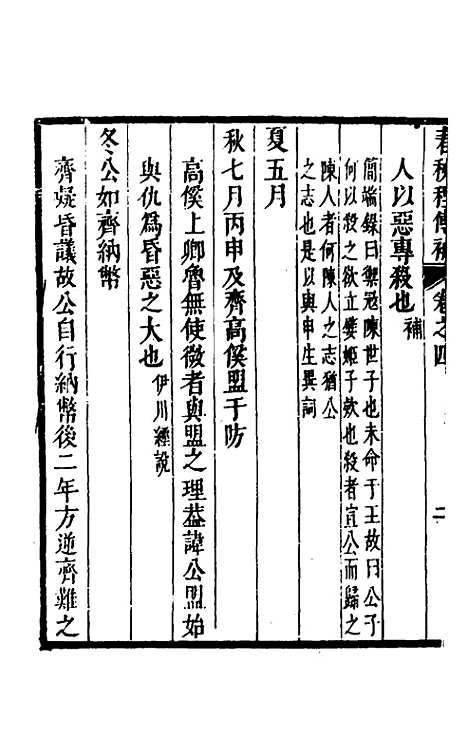 春秋程傳補 卷之四 二
人以惡專殺也補
簡端錄曰禦寇陳世子也未命于王故曰公子
何以殺之欲立嬖姬子欵也殺者宣公而歸之
陳人者何陳人之志猶公
之志也是以與申生異詞
夏五月
秋七月丙申及齊高傒盟于防
高傒上卿魯無使微者與盟之理葢諱公盟始
與仇為昏惡之大也伊川經說
冬公如齊納幣
齊疑昏議故公自行納幣後二年方逆齊難之